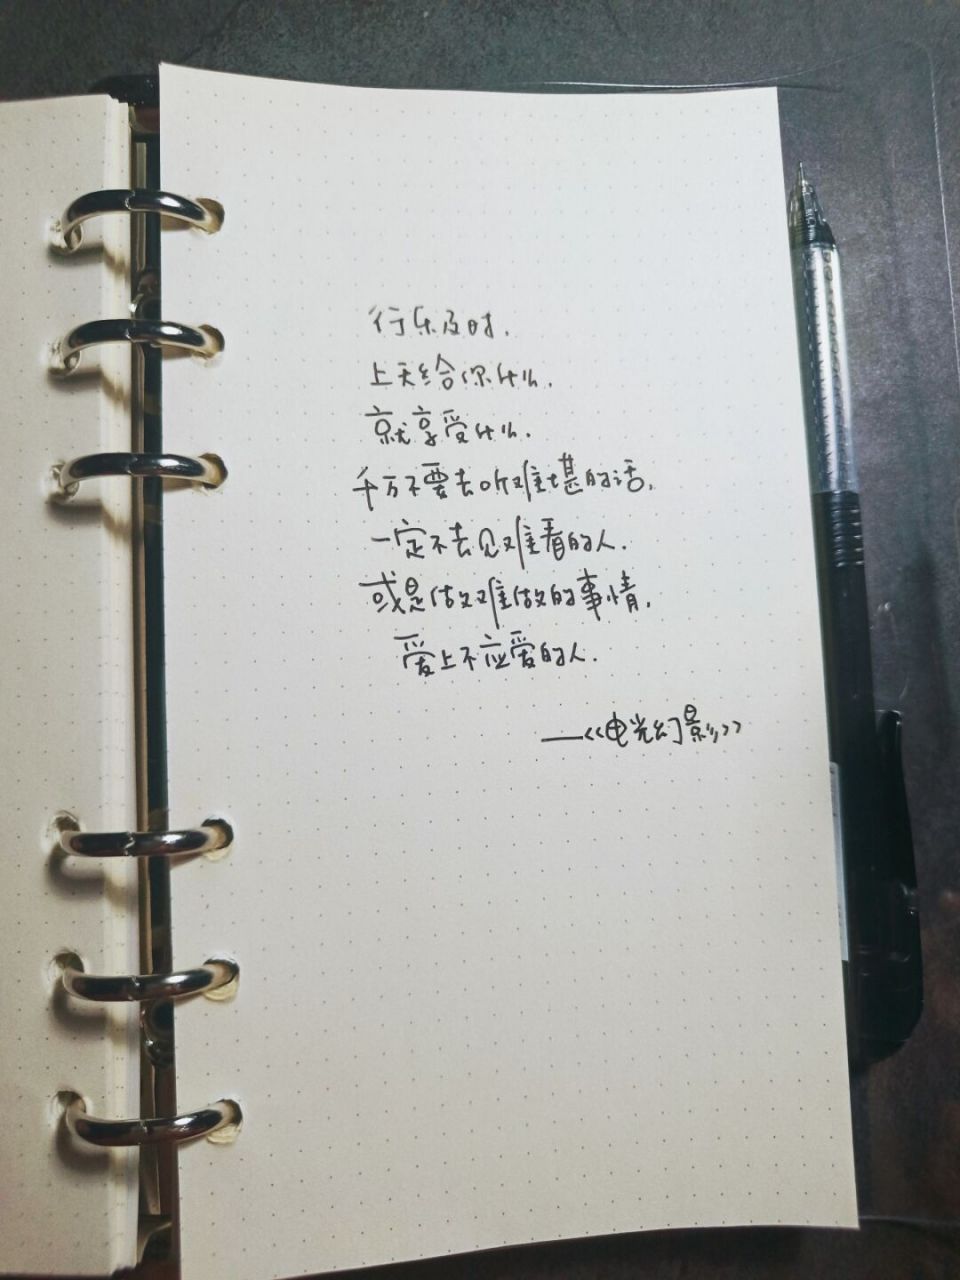 行乐及时.
上天给你什么.
就享受什么.
千万不要去听难堪的话.
一定不去见难看的人.
或是做难做的事情.
爱上不应爱的人.
——《电光幻影》